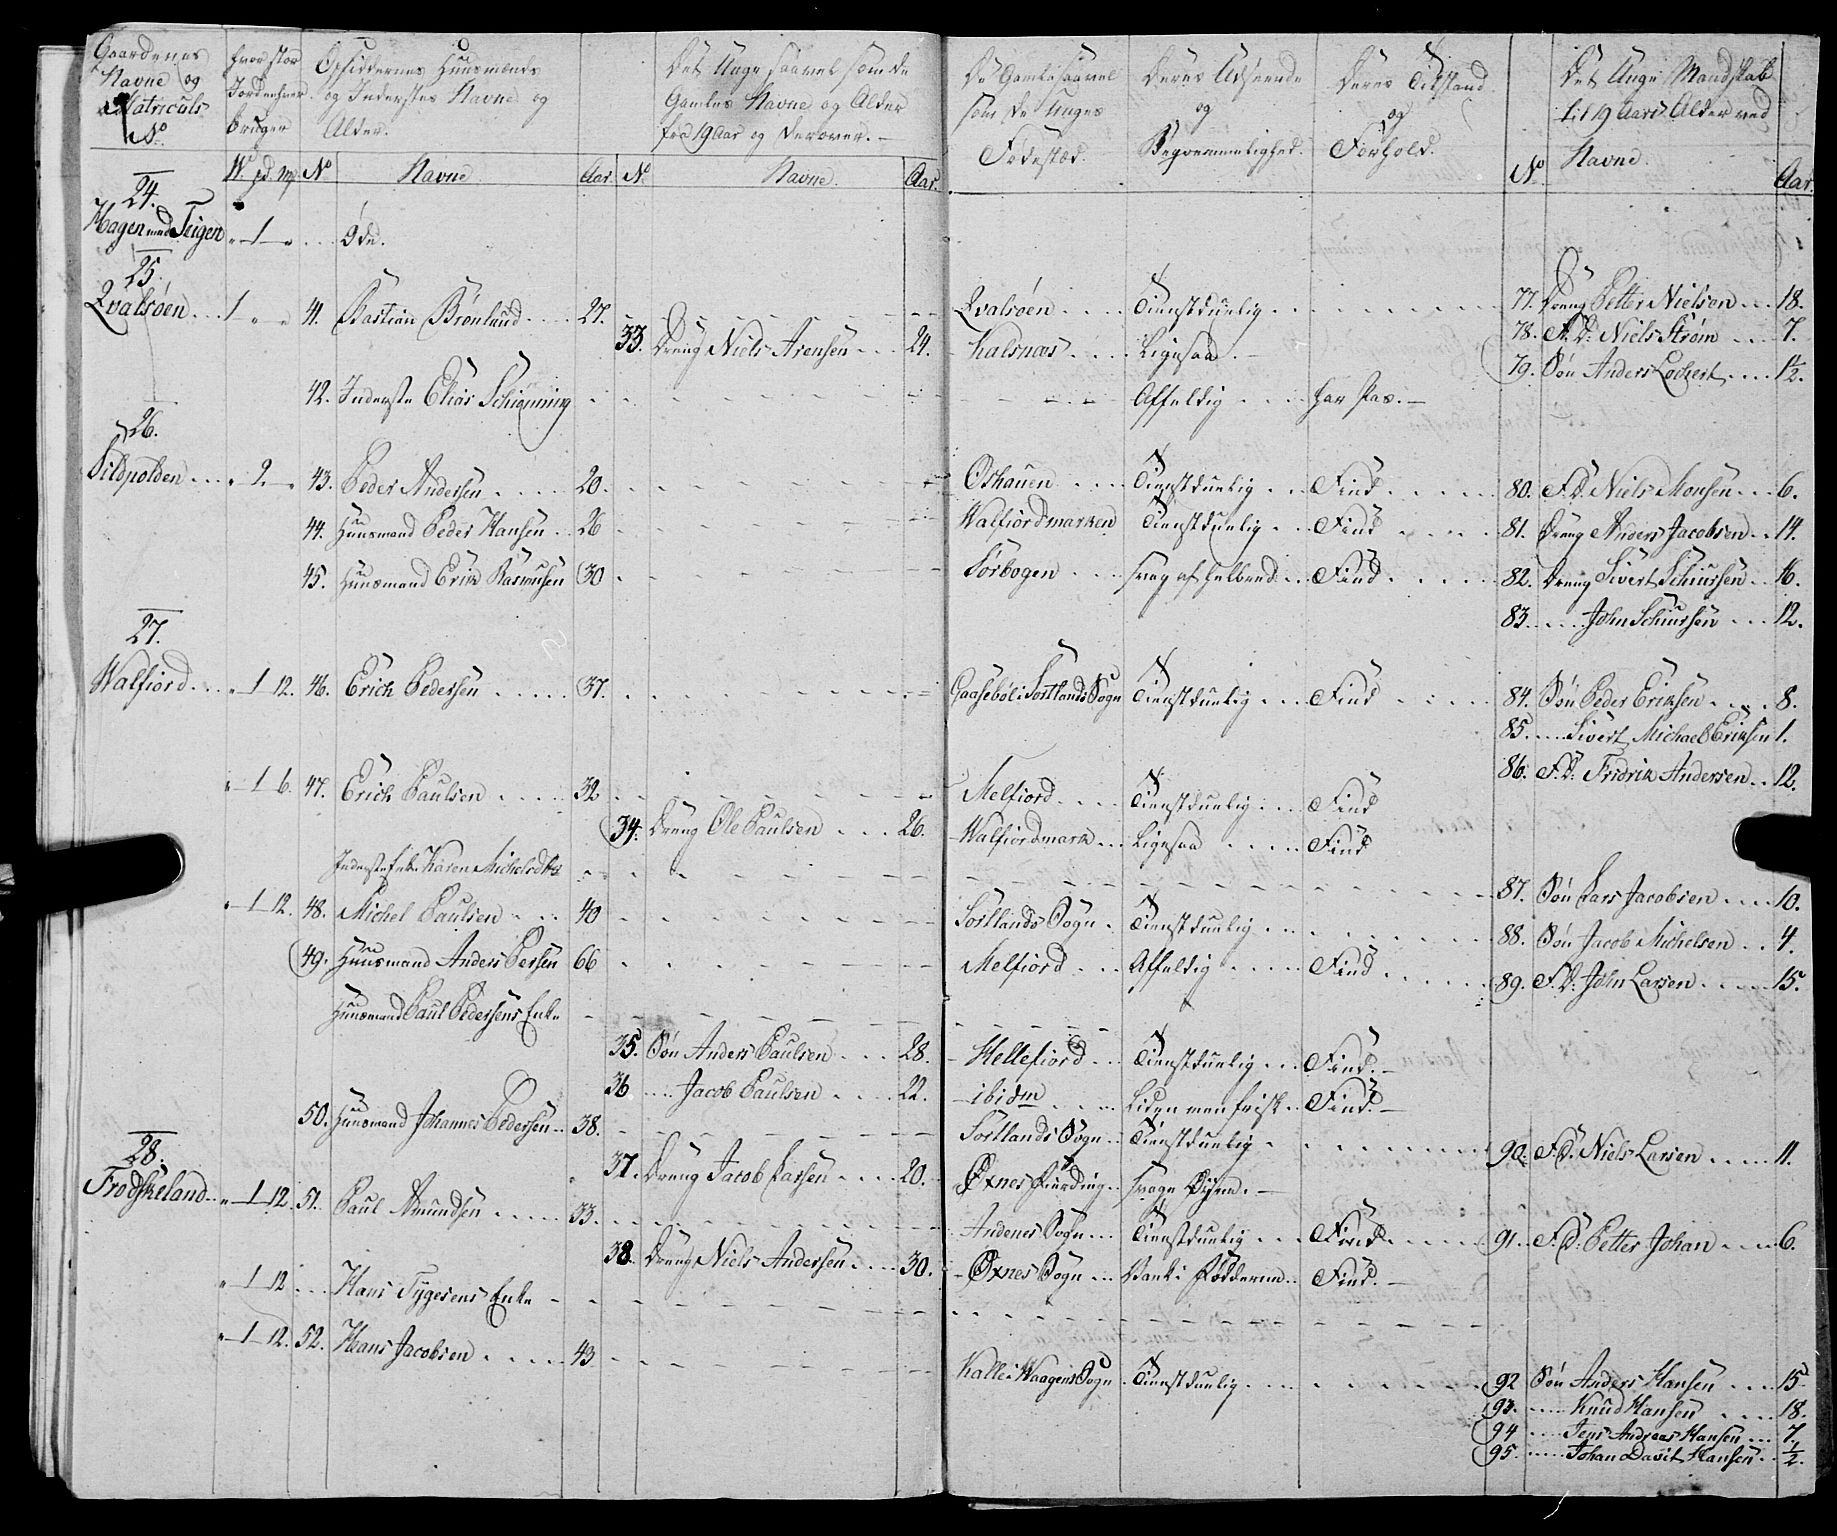 Gaardenes
Navne og
Matriculs
No
hvor stor
Jord enhver
bruger
W. pd. mk.
Opsiddernes Huusmænds
og Inderstes Navne og
Alder.
No Navne. Aar
Det Unge saavel som de
Gamles Navne og Alder
fra 19 Aar og derover. –
No Navne. Aar.
De Gamle saavel
som de Unges
Fødestæd.
Deres Udseende
og
Beqvemmelighed.
Deres Tilstand
og
Forhold.
Det Unge Mandskab
til 19 Aars Alder ved
Navne.
No Aar.
24.
Hagen med Teigen " 1 " Øde.
25.
Qvalsøen 1 " " 41. Bastian Brønlund 27. Qvalsøen Tienstduelig 77. Dreng Petter Nielsen 18.
33. Dreng Niels Arensen 24. Kalsnæs Ligesaa. 78. F.D. Niels Strøm 7.
79. Søn Anders Lochert 1½.
42. Inderste Elias Schiønning Affældig har Pas.
26.
Sildpolden " 2 " 43. Peder Andersen 20. Oshauen Tienstduelig Find 80. F.D. Niels Monsen 6.
44. Huusmand Peder Hansen 26 Walfiordmarken Tienstduelig Find 81. Dreng Anders Jacobsen 14.
45. Huusmand Erik Rasmusen 30 Sørbogen svag af helbred Find 82. Dreng Sivert Schiursen 16.
83. John Schiursen 12.
27.
Walfiord " 1 12. 46. Erich Pedersen 37. Gaasebøl i Sortlands Sogn Tienstduelig Find 84. Søn Peder Eriksen 8.
85. Sivert Michael Eriksen 1.
86. F.D. Fridrik Andersen 12.
" 1 6. 47. Erich Paulsen 32 Melfiord Tienstduelig Find
34. Dreng Ole Paulsen 26. Walfiordmark Ligesaa Find
Inderste Enke Karen Michelsdtr 87. Søn Lars Jacobsen 10.
" 1 12. 48. Michel Paulsen 40 Sortlands Sogn Tienstduelig 88. Søn Jacob Michelsen 4.
49. Huusmand Anders Persen 66 Melfiord Affældig Find 89. F.D. John Larsen 15.
Huusmand Paul Pedersens Enke
35. Søn Anders Paulsen 28. Hellefiord Tienstduelig Find.
36 Jacob Paulsen 22. ibidm Liden men frisk Find.
50. Huusmand Johannes Pedersen 38. Sortlands Sogn Tienstduelig 90. F.D. Niels Larsen 11.
37. Dreng Jacob Larsen 20. Øxnes Fierding svage Øyen.
28.
Frodskeland " 1 12. 51. Paul Amundsen 33. Andenes Sogn Tienstduelig Find 91. F.D. Petter Johan 6.
38. Dreng Niels Andersen 30. Øxnes Sogn Vank i Fødderne Find.
" 1 12 Hans Tygesens Enke
" 1 12. 52. Hans Jacobsen 43 Kalle i Waagens Sogn Tienstduelig 92 Søn Anders Hansen 15
93. Knud Hansen 18.
94 Jens Andreas Hansen 7.
95. Johan Davit Hansen ½.